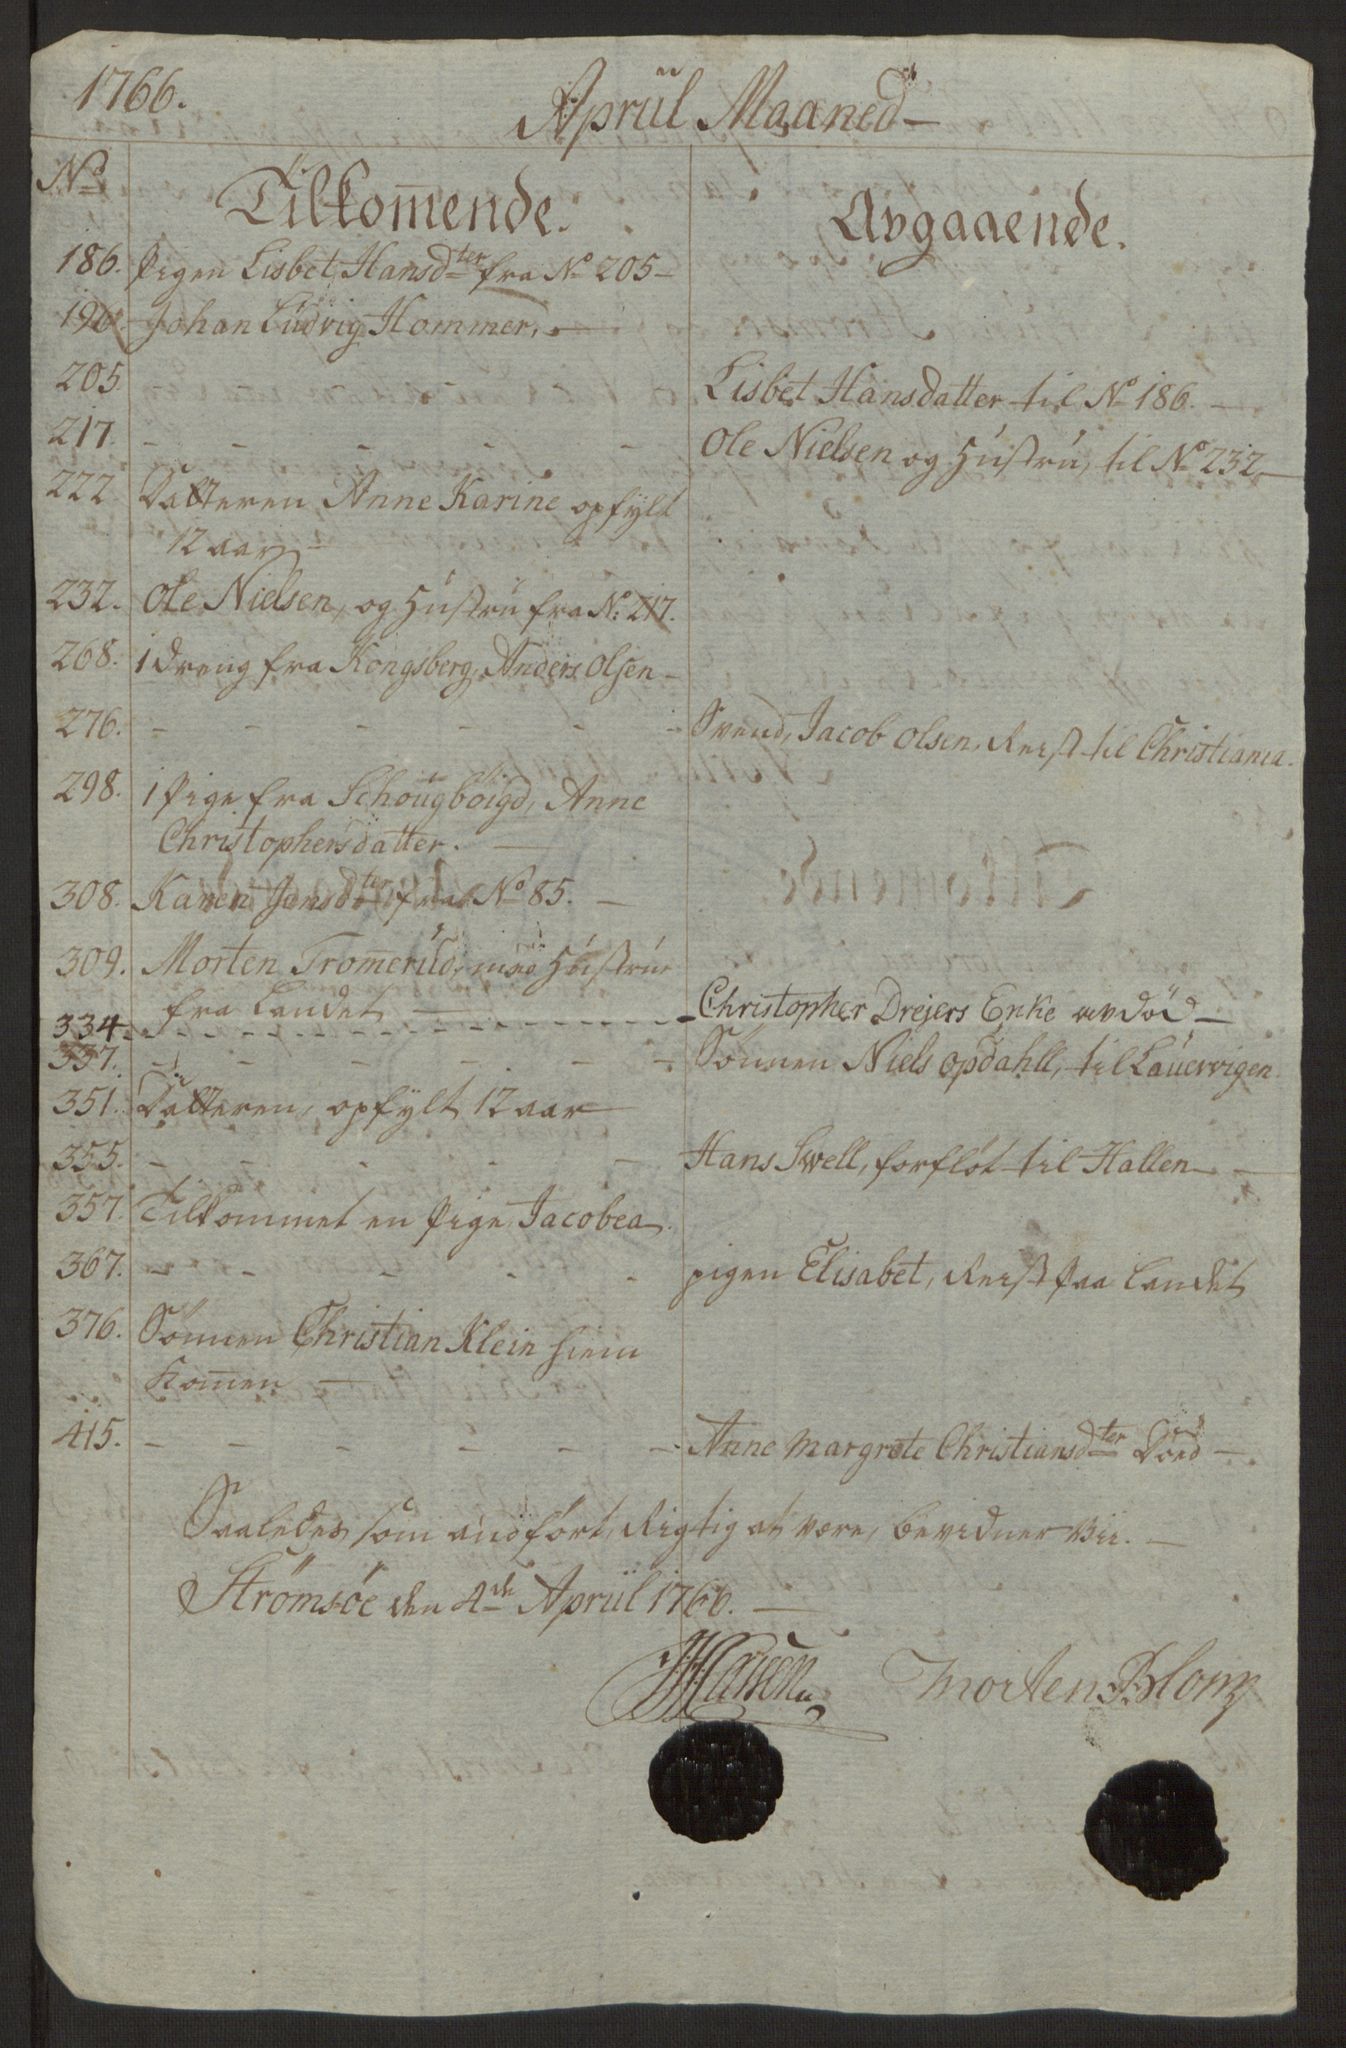 1766.
Apriil Maaned
No Tilkom̄ende. Avgaaende.
186. Pigen Lisbet Hansdter fra No 205
196. Johan Ludvig Hommer,
205. Lisbet Hansdatter til No 186.
217. - - - - - Ole Nielsen og Hustru, til No 232
222 Datteren Anne Karine opfylt
12 aar
232. Ole Nielsen, og Hustru fra No: 217.
268. 1 Dreng fra Kongsberg, Anders Olsen
276. - - - - - - Svend, Jacob Olsen, Reist til Christiania.
298. 1 Pige fra Schougböigd, Anne
Christophersdatter.
308. Karen Jansdter fra No 85.
309. Morten Trom̄erud, med Hustrue
fra Landet
334 - - - - - - Christopher Drejers Enke avdöd
337. - - - - - - Sönnen Niels Opdahll, til Lauervigen
351. Datteren, opfylt 12 aar
355. - - - - - Hans Swell, forflöt til Hallen
357. Tilkommet en Pige Jacobea.
367. - - - - - pigen Elisabet, Reist paa Landet
376. Sönnen Christian Klein hiem
Kom̄en
415. - - - - - - Anne Margrete Christiansdter Död
Saaledes som andfört, Rigtig at være, bevidner vii.
Strömsöe den 4de Apriil 1766.
Morten Blom